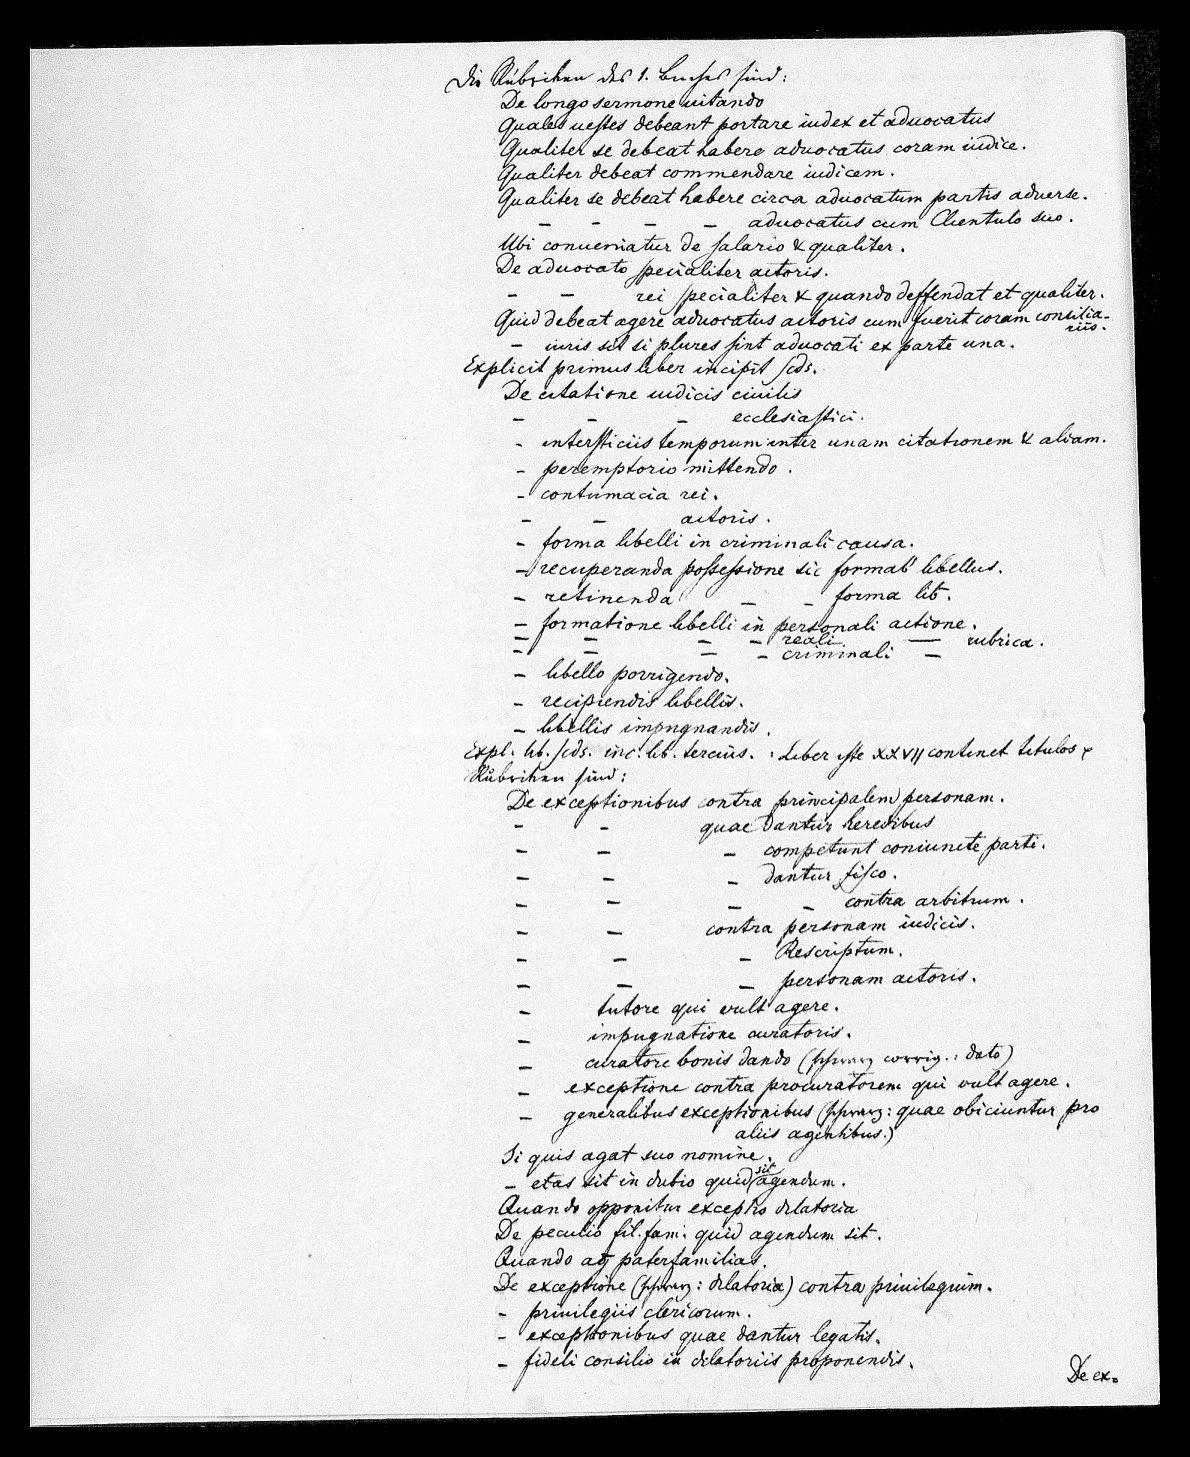 Die Rubriken des 1. Buches sind:
De longo sermone uitando
Quales uestes debeant portare iudex et aduocatus
Qualiter se debeat habere aduocatus coram iudice.
Qualiter debeat commendare iudicem.
Qualiter se debeat habere circa aduocatum partis aduerse.
– – – – aduocatus cum Clientulo suo.
Ubi conueniatur de salario & qualiter.
De aduocato specialiter actoris.
– – rei specialiter & quando deffendat et qualiter.
Quid debeat agere aduocatus actoris cum fuerit coram consilia-
riis.
– iuris sit si plures sint aduocati ex parte una.
Explicit primus liber incipit scds.
De citatione iudicis ciuilis
– – – ecclesiastici.
– intersticiis temporum inter unam citationem & aliam.
– peremptorio mittendo.
– contumacia rei.
– – actoris.
– forma libelli in criminali causa.
– recuperanda possessione sic format' libellus.
– retinenda – – forma lib.
– formatione libelli in personali actione.
– – – – reali — rubrica.
– – – – criminali –
– libello porrigendo.
– recipiendis libellis.
– libellis impugnandis.
Expl. lib. scds. inc. lib. tercius. : Liber iste XXVII continet titulos &
Rubriken sind:
De exceptionibus contra principalem personam.
– – quae dantur heredibus
– – – competunt coniuncte parti.
– – – dantur fisco.
– – – – contra arbitrum.
– – contra personam iudicis.
– – – Rescriptum.
– – – personam actoris.
– tutore qui vult agere.
– impugnatione curatoris.
– curatore bonis dando (schwarz corrig.: dato)
– exceptione contra procuratorem qui vult agere.
– generalibus exceptionibus (schwarz: quae obiciuntur pro
aliis agentibus.)
Si quis agat suo nomine.
– etas sit in dubio quid sit agendum.
Quando opponitur exceptio dilatoria
De peculio fil. fam. quid agendum sit.
Quando agit paterfamilias.
De exceptione (schwarz: dilatoria) contra priuilegium.
– priuilegiis clericorum.
– exceptionibus quae dantur legatis.
– fideli consilio in dilatoriis proponendis.
De ex.